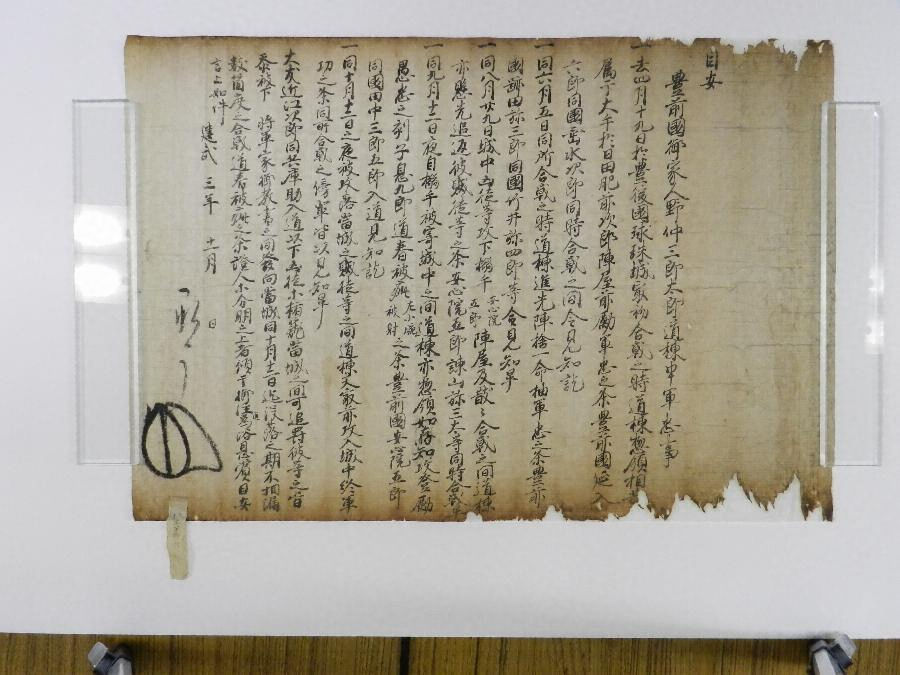 目安
豊前國御家人野仲三郎太郎道棟申軍忠事
一去四月十九日於豊後國球珠城最初合戦之時道棟惣領相共
属于大手於日田肥前次郎陣屋前勵軍忠之条豊前國 入
六郎同國 水次郎同時合戦之間令見知訖
一同六月五日同所合戦之時道棟進先陣捨一命抽軍忠之条豊前
國跡田弥三郎同國竹井弥四郎等令見知畢
一同八月廿九日城中凶徒等攻下搦手安心院五郎陣屋及散々合戦之間道棟
亦懸先追返彼賊徒等之条安心院五郎諫山弥三太郎等同時合戦
一同九月十二日夜自搦手被寄城中之間道棟亦惣領如存知攻登勵
愚忠之刻子息九郎道春被疵左小 被射之条豊前國安心院五郎
同國田中三郎五郎入道見知訖
一同十月十二日之夜被攻落當城之賊徒等之間道棟又最前攻入城中終軍
功之条同所合戦之傍軍皆以見知畢
大友近江次郎同兵庫助入道以下凶徒等楯籠當城之間可追罸彼等之旨
忝被下 将軍家御教書之間發向當城同十月十二日迄没落之期不相漏
数箇度之合戦道春被疵之条證人等分明之上者賜御 為浴恩賞目安
言上如件
建武三年十一月 日